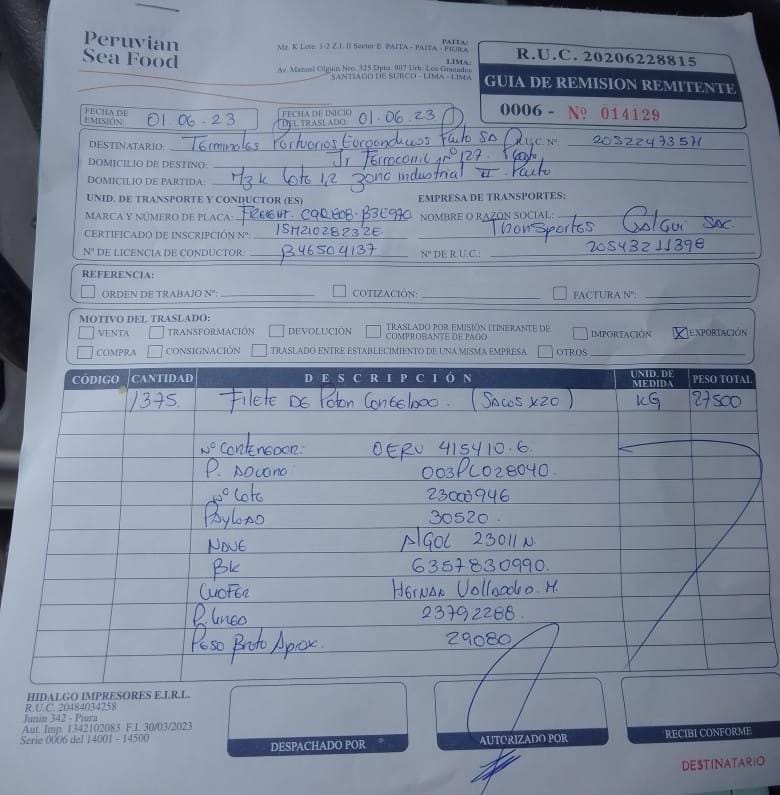 Peruvian
Sea Food
Mz. K Lote. 1-2 Z.I. II Sector E PAITA - PAITA - PIURA
PAITA:
LIMA:
Av. Manuel Olguin Nro. 325 Dpto. 907 Urb. Los Granados
SANTIAGO DE SURCO - LIMA - LIMA
R.U.C. 20206228815
GUIA DE REMISION REMITENTE
0006 - Nº 014129
FECHA DE EMISIÓN: 01.06.23
FECHA DE INICIO DEL TRASLADO: 01.06.23
DESTINATARIO: Terminales Portuarios Euroandinos Paita SA R.U.C. Nº: 20522473571
DOMICILIO DE DESTINO: Jr Ferrocarril nº 127. Paita
DOMICILIO DE PARTIDA: Mz K Lote 1,2 Zona industrial II. Paita
UNID. DE TRANSPORTE Y CONDUCTOR (ES)
EMPRESA DE TRANSPORTES:
MARCA Y NÚMERO DE PLACA: FREIGHT. B3E990
NOMBRE O RAZÓN SOCIAL: Transportes SAC.
CERTIFICADO DE INSCRIPCIÓN Nº: 15M21028232E
Nº DE LICENCIA DE CONDUCTOR: B46504137
Nº DE R.U.C.: 20543211398
REFERENCIA:
ORDEN DE TRABAJO Nº:
COTIZACIÓN:
FACTURA Nº:
MOTIVO DEL TRASLADO:
VENTA
TRANSFORMACIÓN
DEVOLUCIÓN
TRASLADO POR EMISIÓN ITINERANTE DE COMPROBANTE DE PAGO
IMPORTACIÓN
X EXPORTACIÓN
COMPRA
CONSIGNACIÓN
TRASLADO ENTRE ESTABLECIMIENTO DE UNA MISMA EMPRESA
OTROS
CÓDIGO CANTIDAD DESCRIPCIÓN UNID. DE MEDIDA PESO TOTAL
1375. Filete DE Poton Congelado. (Sacos x20) KG 27500
Nº Contenedor: OERU 415410.6.
P. Aduana 003PL028040.
Nº Lote 23000946
Payload 30520.
Nave Algol 23011 N.
Bk 6357830990.
Chofer Hernan M.
P. Linea 23792288.
Peso Bruto Aprox. 29080
HIDALGO IMPRESORES E.I.R.L.
R.U.C. 20484034258
Junin 342 - Piura
Aut. Imp. 1342102083 F.I. 30/03/2023
Serie 0006 del 14001 - 14500
DESPACHADO POR
AUTORIZADO POR
RECIBI CONFORME
DESTINATARIO